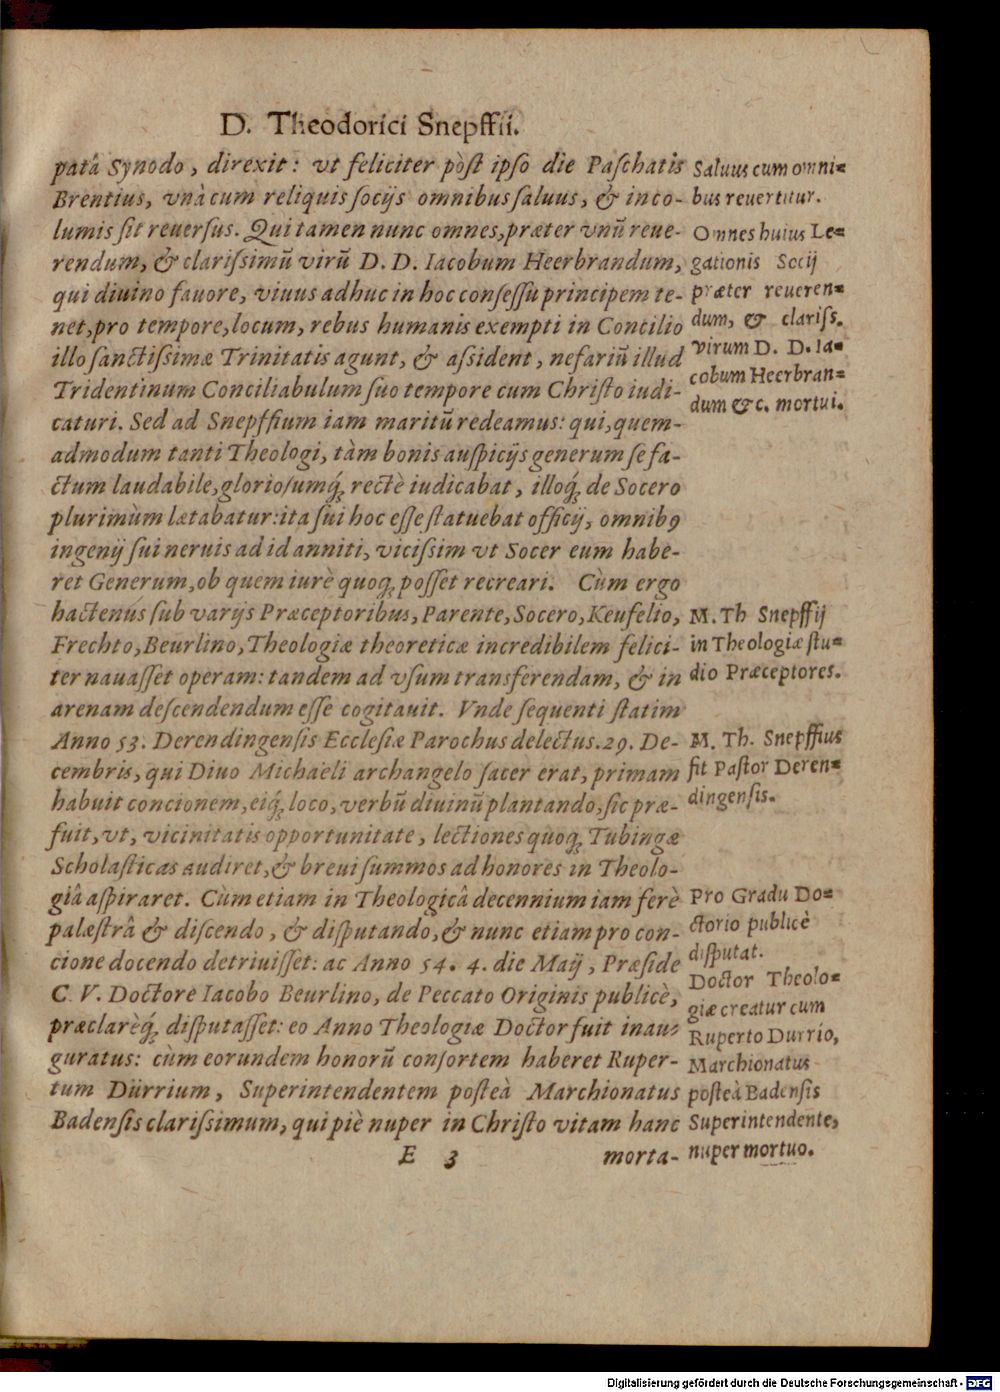 D. Theodorici Snepffii.
patâ Synodo, direxit: vt feliciter pòſt ipſo die Paſchatis
Brentius, vnà cum reliquis ſocijs omnibus ſaluus, & inco-
lumis ſit reuerſus. Qui tamen nunc omnes, præter vnũ reue-
rendum, & clariſsimũ virũ D. D. Iacobum Heerbrandum,
qui diuino fauore, viuus adhuc in hoc conſeſſu principem te-
net, pro tempore, locum, rebus humanis exempti in Concilio
illo ſanctiſsimæ Trinitatis agunt, & aſsident, nefariũ illud
Tridentinum Conciliabulum ſuo tempore cum Chriſto iudi-
caturi. Sed ad Snepffium iam maritũ redeamus: qui, quem-
admodum tanti Theologi, tàm bonis auſpicijs generum ſe fa-
ctum laudabile, glorioſumq́; rectè iudicabat, illoq́; de Socero
plurimùm lætabatur: ita ſui hoc eſſe ſtatuebat officij, omnibꝰ
ingenij ſui neruis ad id anniti, viciſsim vt Socer eum habe-
ret Generum, ob quem iurè quoq; poſſet recreari. Cùm ergo
hactenús ſub varijs Præceptoribus, Parente, Socero, Keufelio,
Frechto, Beurlino, Theologiæ theoreticæ incredibilem felici-
ter nauaſſet operam: tandem ad vſum transferendam, & in
arenam deſcendendum eſſe cogitauit. Vnde ſequenti ſtatim
Anno 53. Derendingenſis Eccleſiæ Parochus delectus. 29. De-
cembris, qui Diuo Michaëli archangelo ſacer erat, primam
habuit concionem, eiq́; loco, verbũ diuinũ plantando, ſic præ-
fuit, vt, vicinitatis opportunitate, lectiones quoq; Tubingæ
Scholaſticas audiret, & breui ſummos ad honores in Theolo-
giâ aſpiraret. Cùm etiam in Theologicâ decennium iam ferè
palæſtrâ & diſcendo, & diſputando, & nunc etiam pro con-
cione docendo detriuiſſet: ac Anno 54. 4. die Maij, Præſide
C. V. Doctore Iacobo Beurlino, de Peccato Originis publicè,
præclarèq́; diſputaſſet: eo Anno Theologiæ Doctor fuit inau-
guratus: cùm eorundem honorũ conſortem haberet Ruper-
tum Dürrium, Superintendentem poſteà Marchionatus
Badenſis clariſsimum, qui piè nuper in Chriſto vitam hanc
E 3 morta-
Saluus cum omni-
bus reuertitur.
Omnes huius Le-
gationis Socij
præter reueren-
dum, & clariſs.
virum D. D. Ia-
cobum Heerbran-
dum &c. mortui.
M. Th Snepffij
in Theologiæ ſtu-
dio Præceptores.
M. Th. Snepffius
fit Paſtor Deren-
dingenſis.
Pro Gradu Do-
ctorio publicè
diſputat.
Doctor Theolo-
giæ creatur cum
Ruperto Durrio,
Marchionatus
poſteà Badenſis
Superintendente,
nuper mortuo.
Digitalisierung gefördert durch die Deutsche Forschungsgemeinschaft - DFG